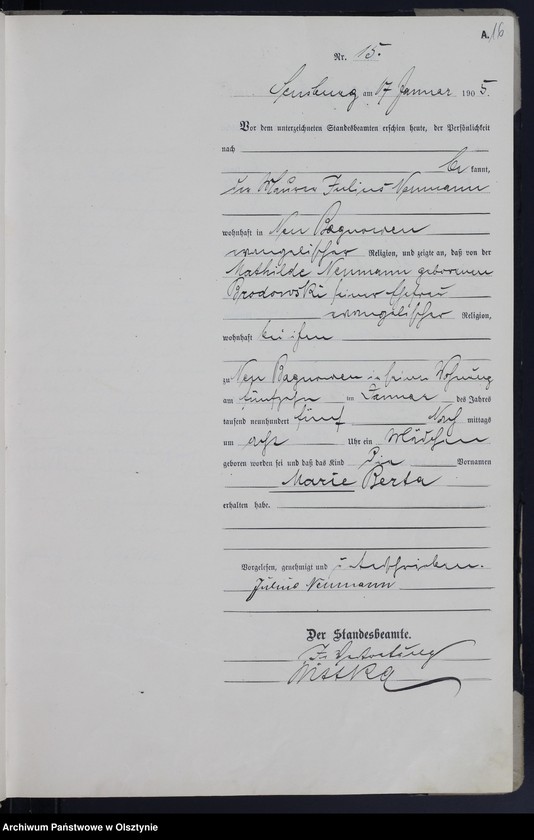 A. 16
Nr. 15.
Sensburg am 17 Januar 1905.
Vor dem unterzeichneten Standesbeamten erschien heute, der Persönlichkeit
nach
be kannt,
der Maurer Julius Neumann
wohnhaft in Neu Bagnowen
evangelischer Religion, und zeigte an, daß von der
Mathilde Neumann geborenen
Brodowski seiner Ehefrau
evangelischer Religion,
wohnhaft bei ihm
zu Neu Bagnowen in seiner Wohnung
am fünfzehn ten Januar des Jahres
tausend neunhundert fünf Nach mittags
um acht Uhr ein Mädchen
geboren worden sei und daß das Kind die Vornamen
Marie Berta
erhalten habe.
Vorgelesen, genehmigt und unterschrieben.
Julius Neumann
Der Standesbeamte.
In Vertretung
Archiwum Państwowe w Olsztynie